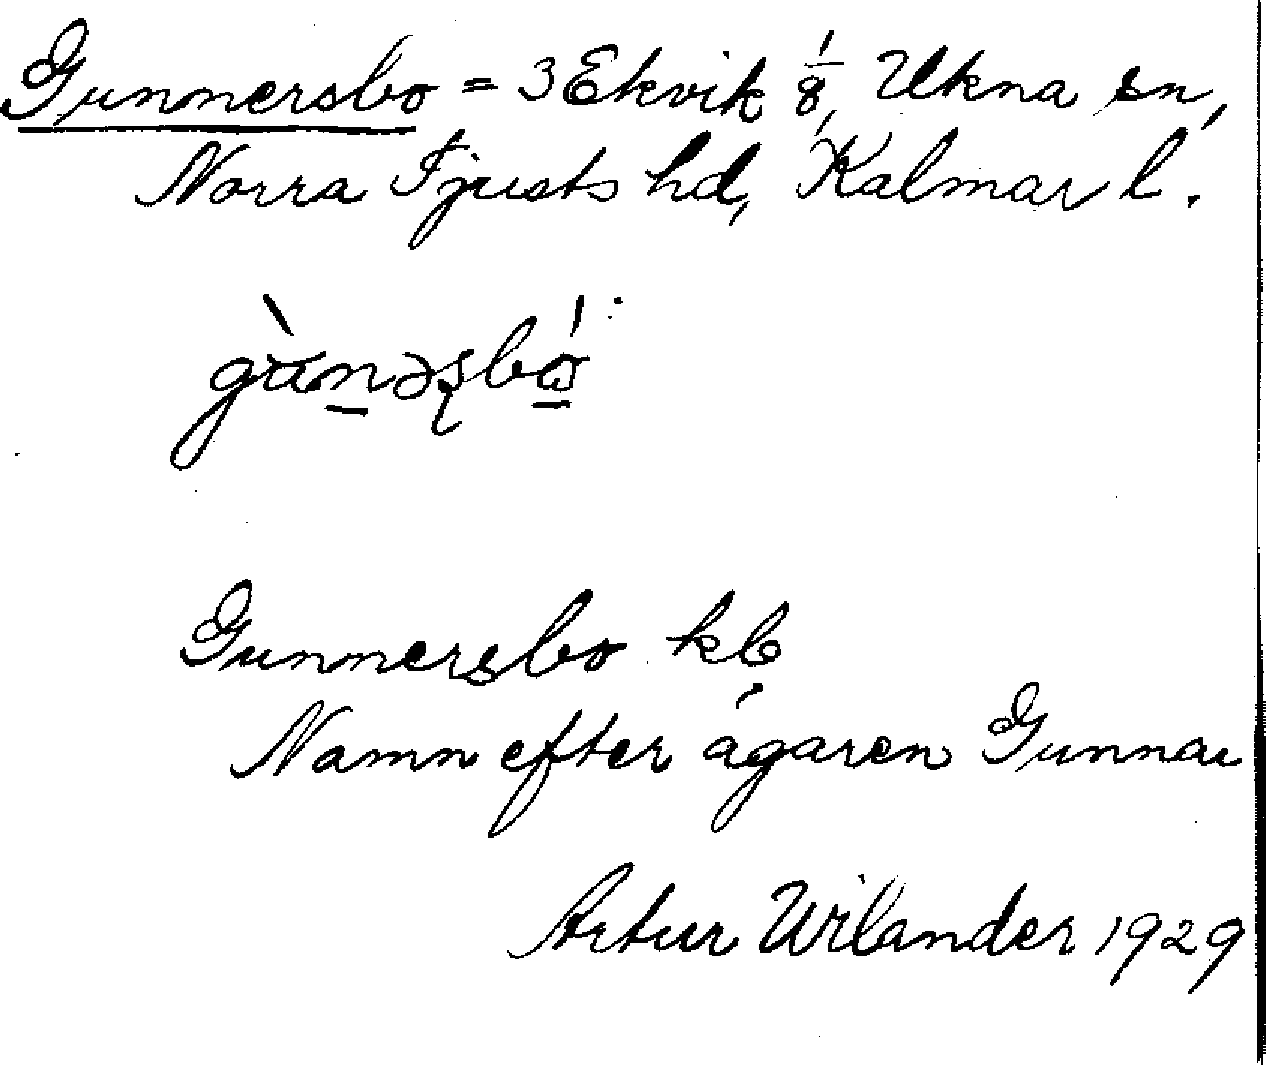 Gunnersbo = 3 Ekvik 1/8, Ukna sn,
Norra Tjusts hd, Kalmar l.
Gunnersbo kb
Namn efter ägaren Gunnar
Artur Wilander 1929